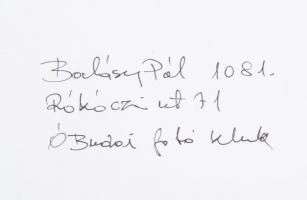 Balásy Pál 1081.
Rákóczi út 71
ÓBudai fotó klub